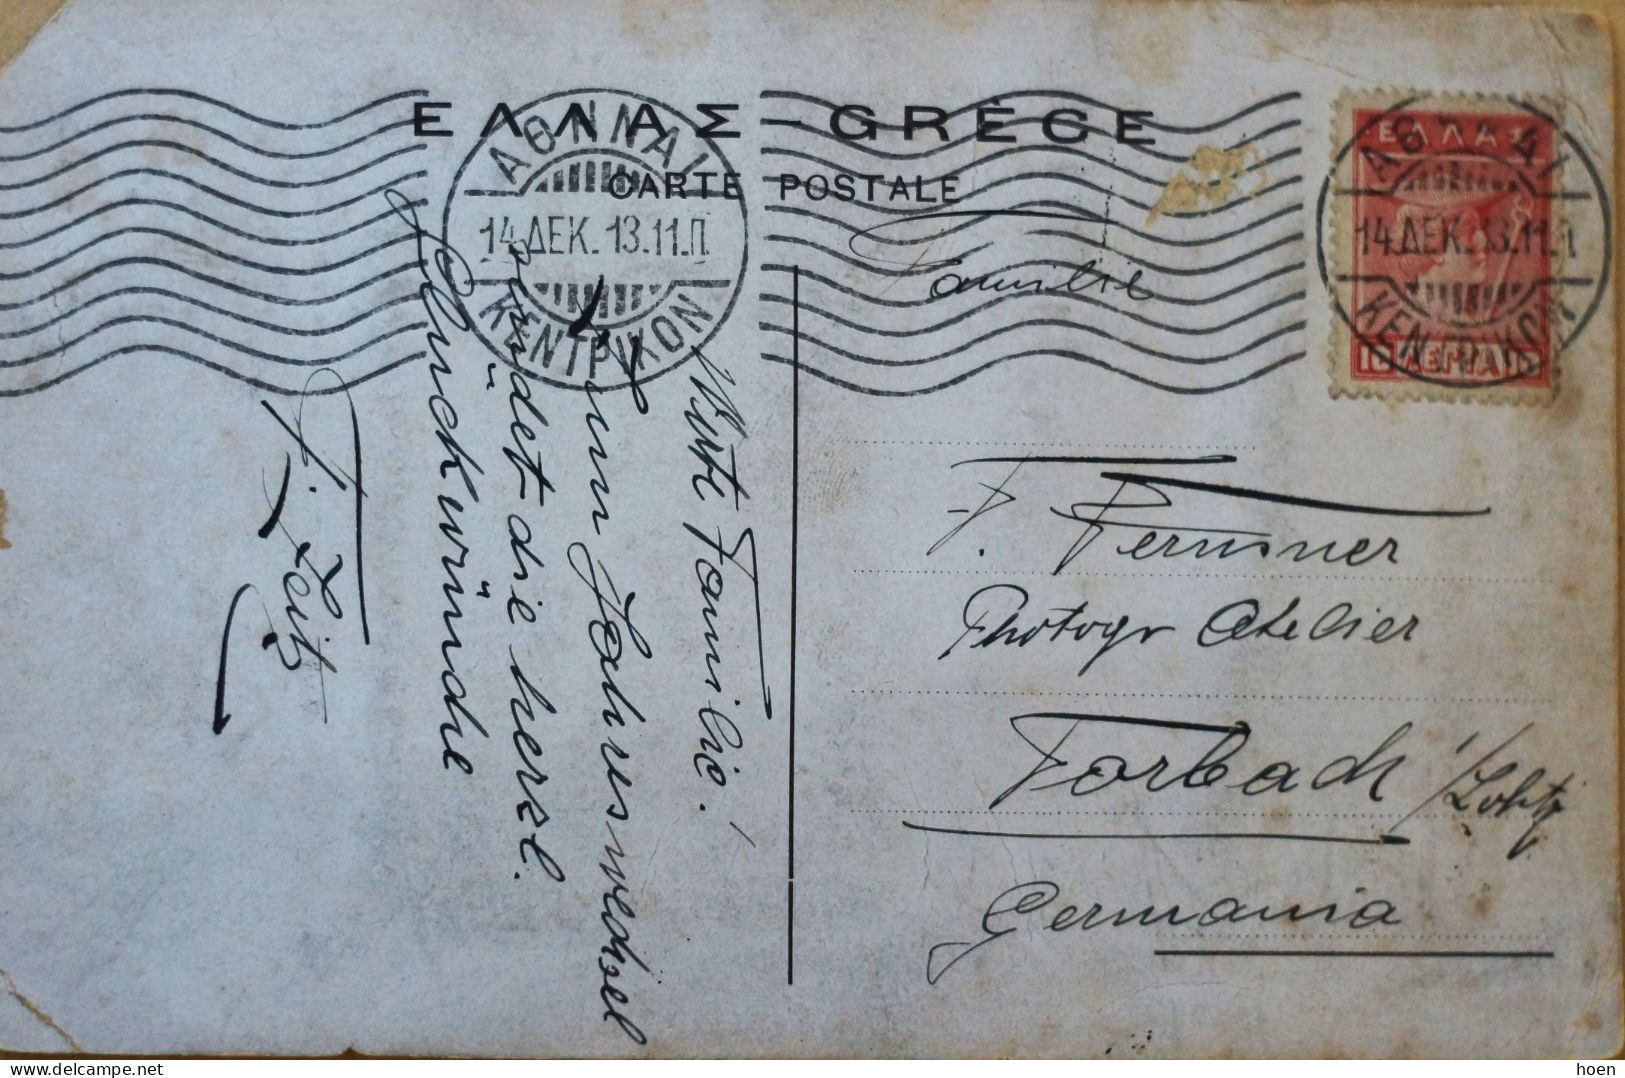 ΕΛΛΑΣ - GRÈCE
CARTE POSTALE
ΑΘΗΝΑΙ
14.ΔΕΚ.13.11.Π.
ΚΕΝΤΡΙΚΟΝ
ΕΛΛΑΣ
10 ΛΕΠΤΑ 10
ΑΘΗΝΑΙ
14.ΔΕΚ.13.11.Π.
ΚΕΝΤΡΙΚΟΝ
Familie
F.
Photogr Atelier
Forbach /Lothr
Germania
Wte Familie!
Zum Jahreswechsel
sendet die herzl.
Glückwünsche
F. Zeitz
www.delcampe.net
hoen